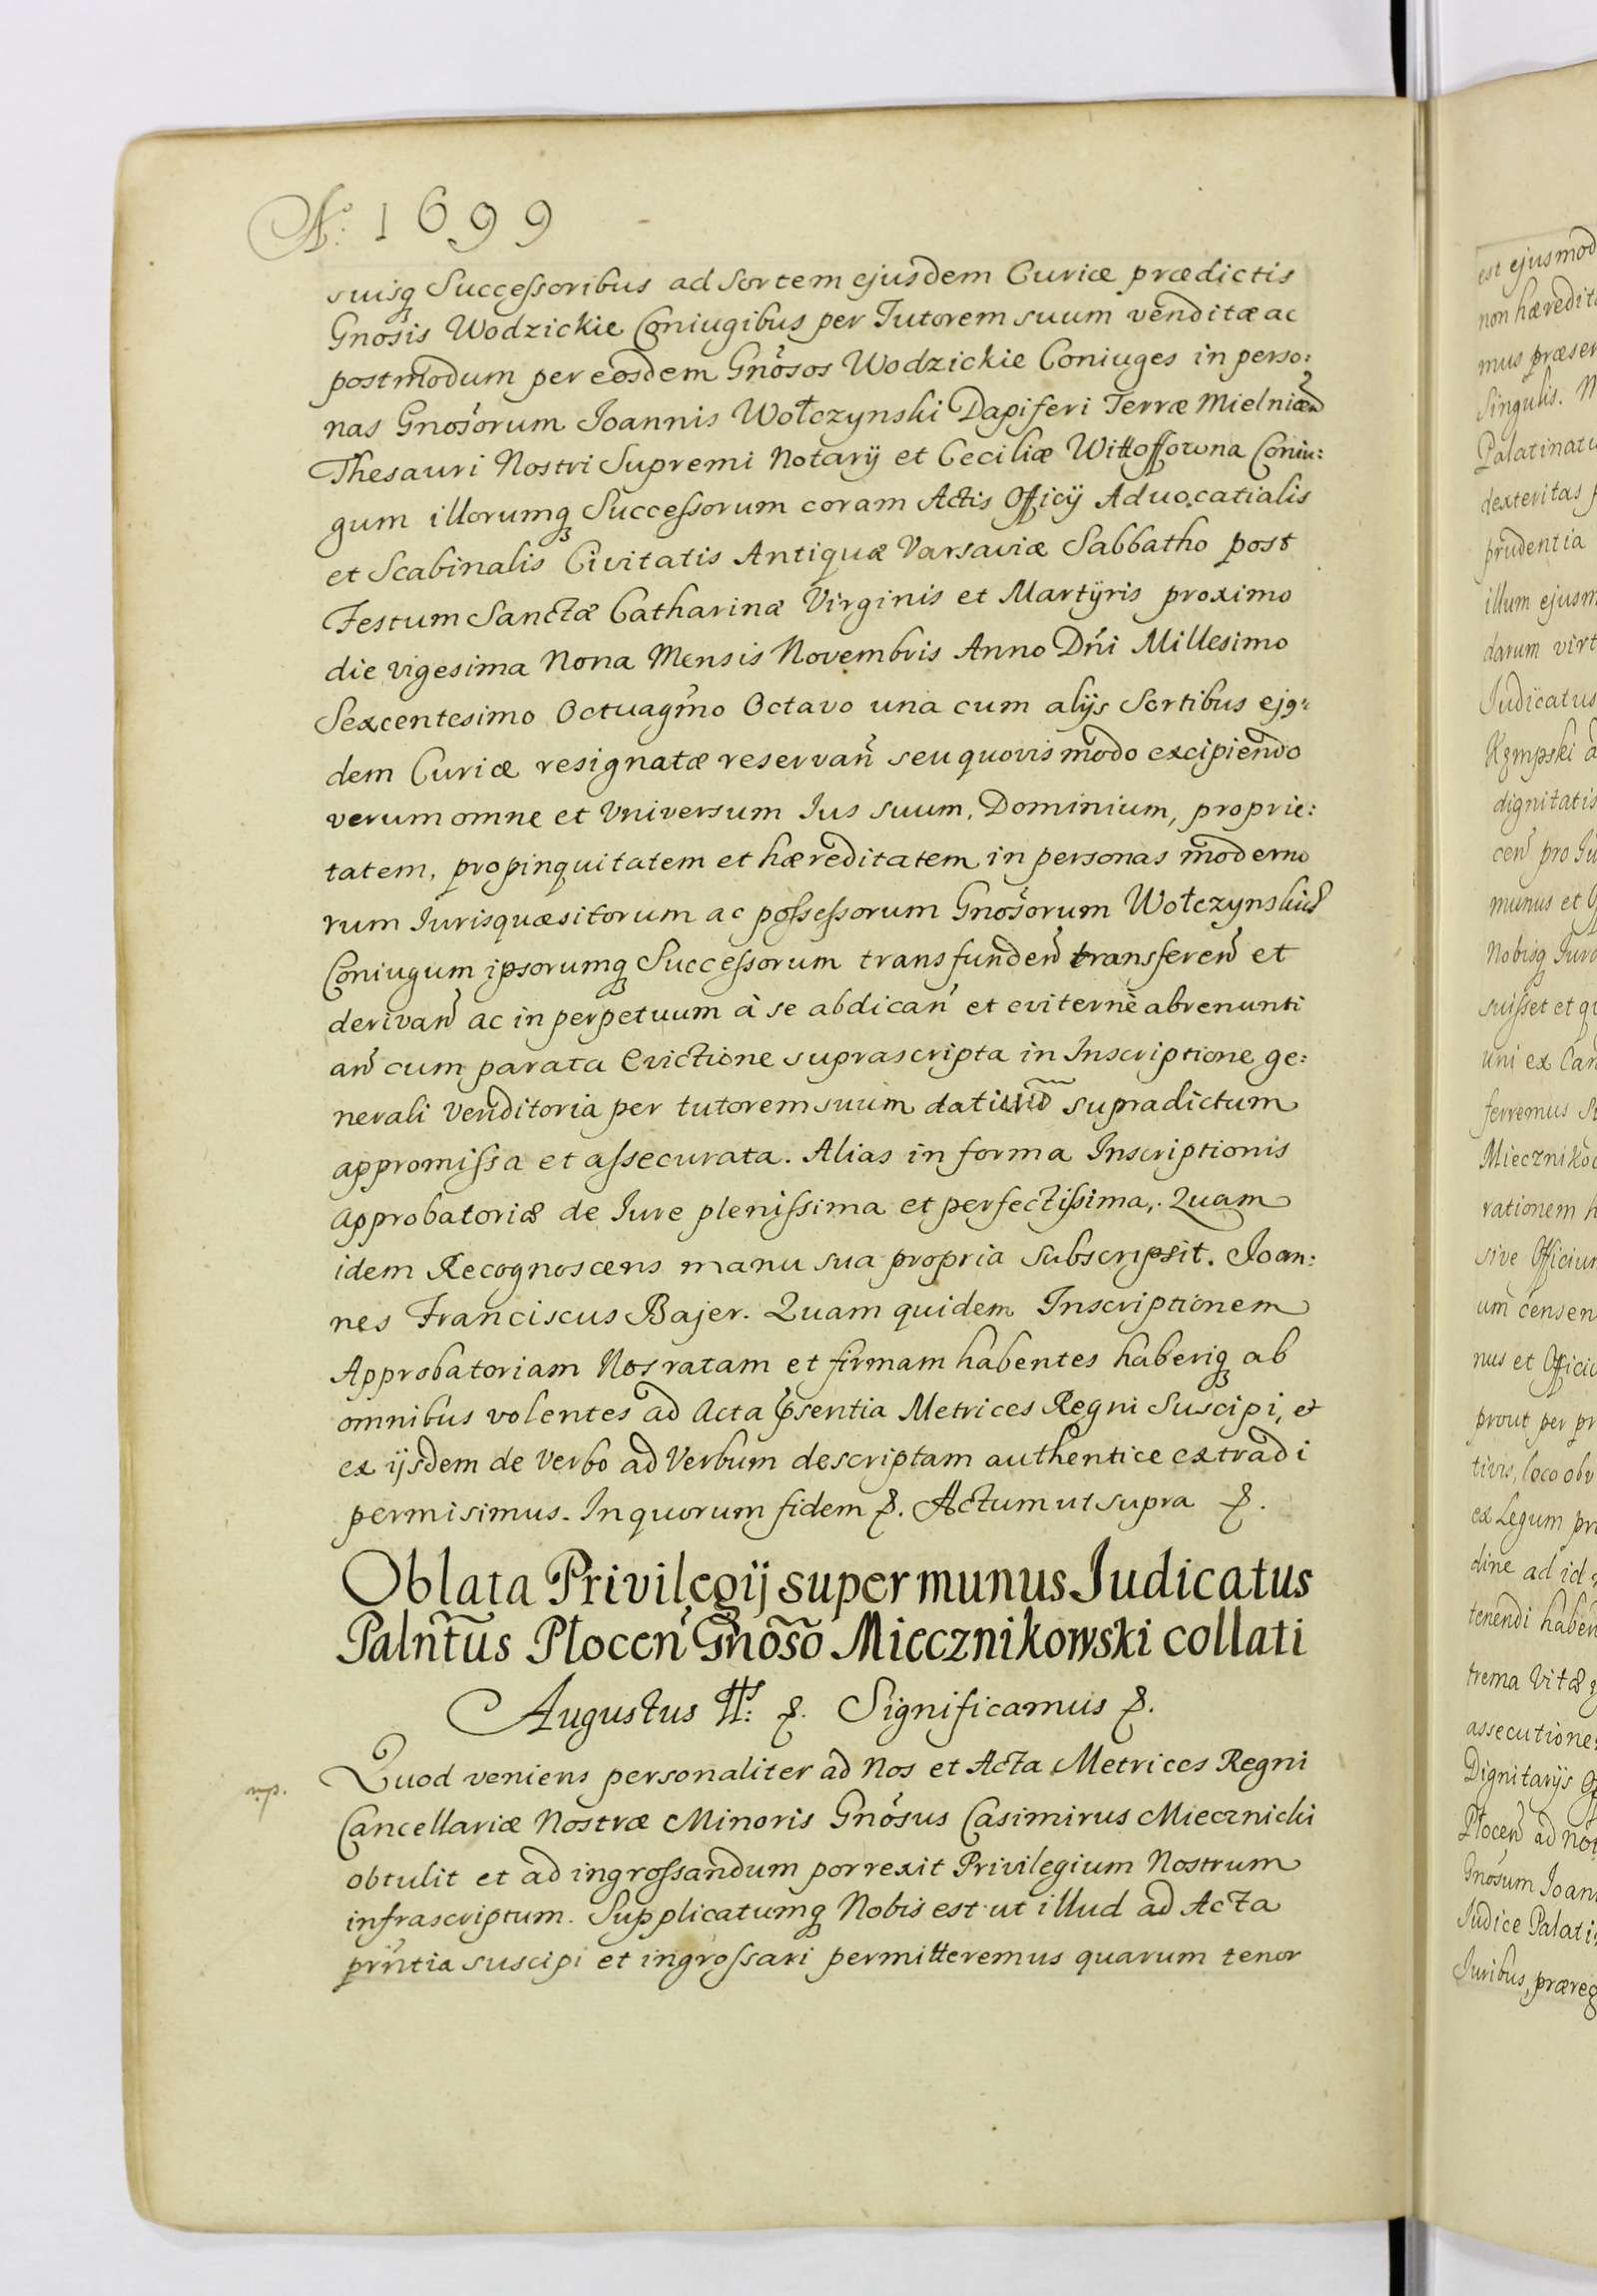 Aº: 1699
suisq Successoribus ad Sortem ejusdem Curiæ prædictis
Gnosis Wodzickie Coniugibus per Tutorem suum venditæ ac
postmodum per eosdem Gnosos Wodzickie Coniuges in perso:
nas Gnosorum Joannis Wołczynski Dapiferi Terræ Mielnicen
Thesauri Nostri Supremi Notarij et Ceciliæ Wittoffowna Coniu:
gum illorumq Successorum coram Actis Officij Advocatialis
et Scabinalis Civitatis Antiquæ Varsaviæ Sabbatho post
Festum Sanctæ Catharinæ Virginis et Martyris proximo
die vigesima Nona Mensis Novembris Anno Dni Millesimo
Sexcentesimo Octuagmo Octavo una cum alijs Sortibus ej9:
dem Curiæ resignatæ reservan seu quovis modo excipiendo
verum omne et Universum Jus suum, Dominium, proprie:
tatem, propinquitatem et hæreditatem in personas moderno
rum Jurisquæsitorum ac possessorum Gnosorum Wołczynskich
Coniugum ipsorumq Successorum transfunden transferen et
derivan ac in perpetuum à se abdican et eviternè abrenunti
an cum parata Evictione suprascripta in Inscriptione ge:
nerali Venditoria per tutorem suum supradictum
appromissa et assecurata. Alias in forma Inscriptionis
Approbatoriæ de Jure plenissima et perfectissima, Quam
idem Recognoscens manu sua propria subscripsit. Joan:
nes Franciscus Bajer. Quam quidem Inscriptionem
Approbatoriam Nos ratam et firmam habentes haberiq ab
omnibus volentes ad Acta psentia Metrices Regni Suscipi, et
ex ijsdem de Verbo ad Verbum descriptam authentice extradi
permisimus. In quorum fidem &. Actum ut supra &.
Oblata Privilegij super munus Judicatus
Palntus Płocen Gnoso Miecznikowski collati
Augustus IIdus: &. Significamus &.
mp.
Quod veniens personaliter ad Nos et Acta Metrices Regni
Cancellariæ Nostræ Minoris Gnosus Casimirus Miecznicki
obtulit et ad ingrossandum porrexit Privilegium Nostrum
infrascriptum. Supplicatumq Nobis est ut illud ad Acta
prntia suscipi et ingrossari permitteremus quarum tenor
est ejusmod
non hæredit
mus præsen
Singulis. N
Palatinatu
dexteritas
prudentia
illum ejusm
darum virt
Judicatus
Kempski a
dignitatis
cen pro Ju
munus et
Nobisq Jur
suisset et qu
uni ex Can
ferremus
Miecznikow
rationem h
sive Officiu
um censen
nus et Offici
prout per pr
tivis, loco obv
ex Legum pr
dine ad id
tenendi haben
trema Vitæ
assecutione
Dignitarijs
Płocen ad nos
Gnosum Joan
Judice Palati
Juribus, præreg